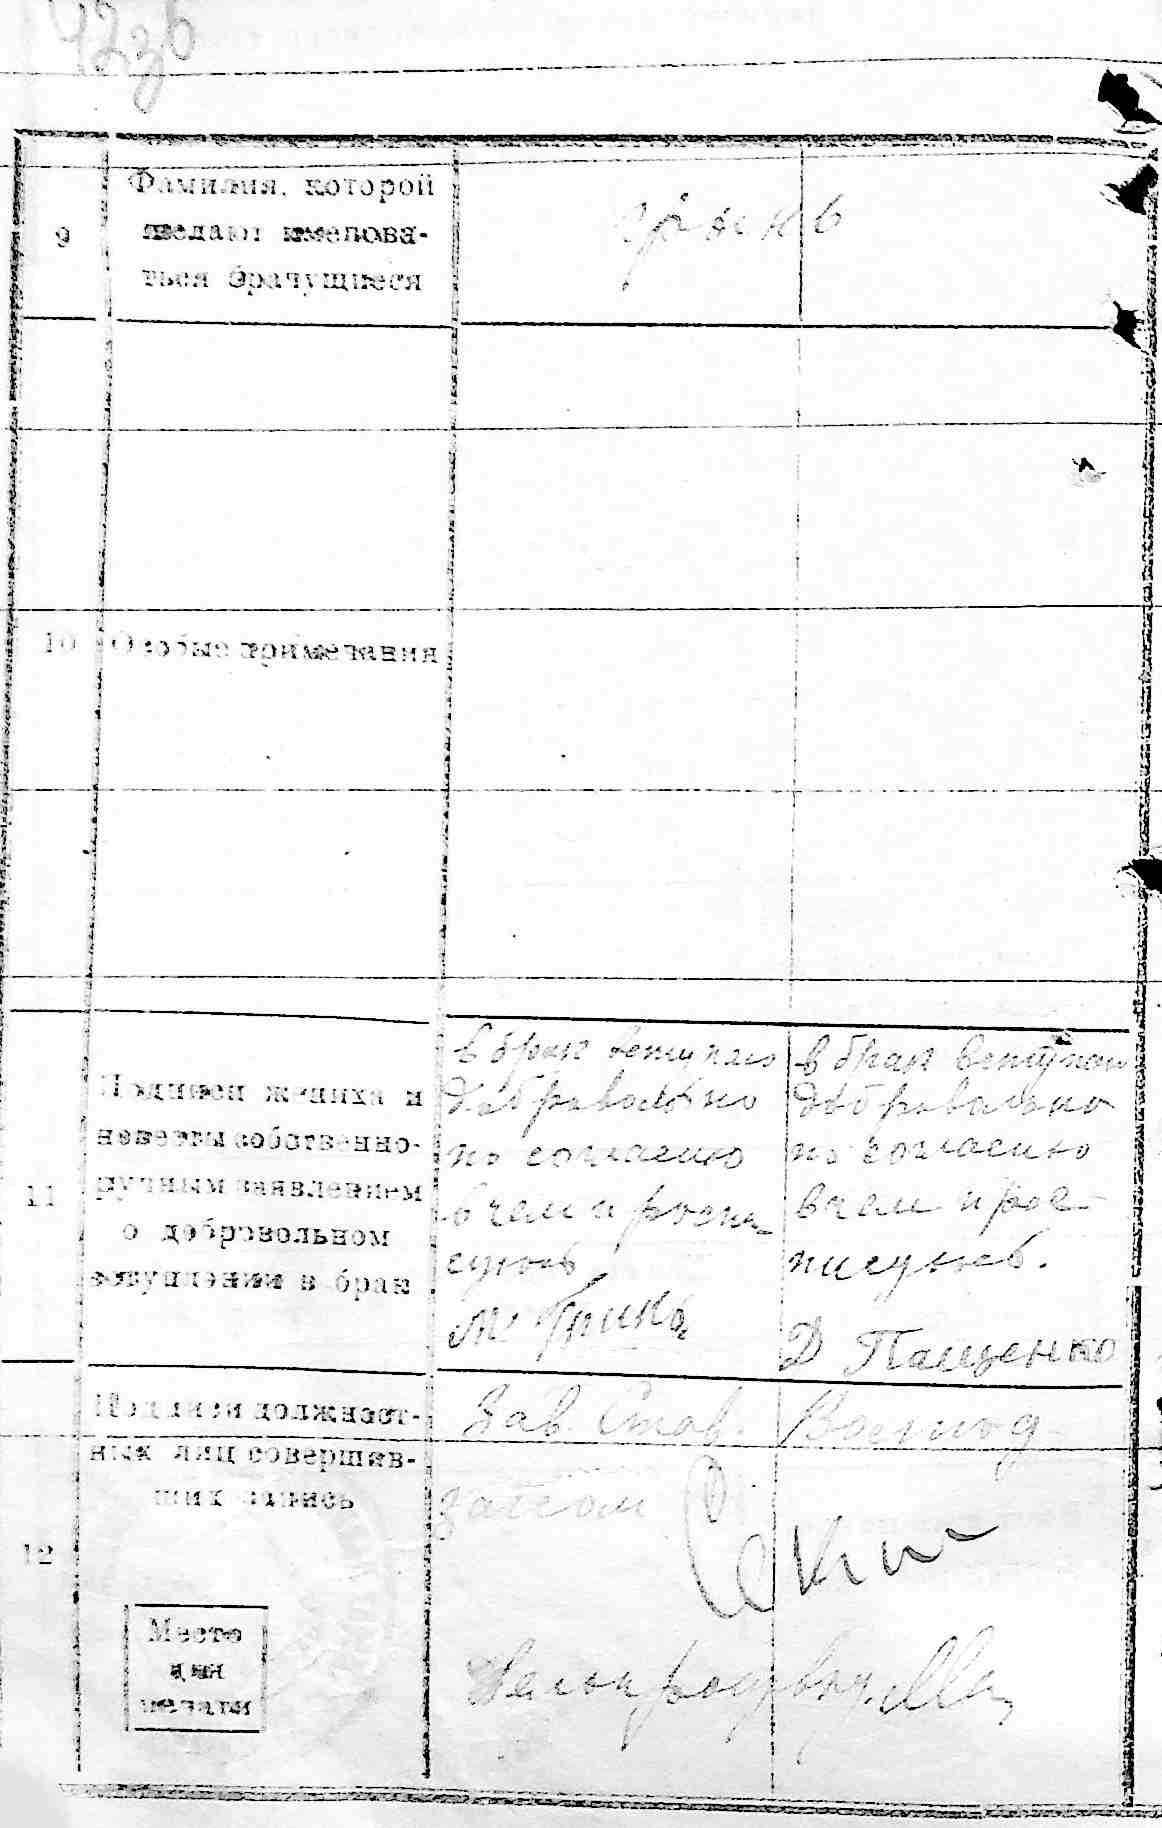 9
Фамилия, которой
желают именова-
ться брачущиеся
10 Особые примечания
11
Подписи жениха и
невесты собственно-
ручным заявлением
о добровольном
вступлении в брак
в брак вступаю
добравольно
по согласию
в чем и роспи-
суюсь
М Гринь
в брак вступаю
добравольно
по согласию
в чем и рос-
писуюсь.
Д Пащенко
12
Подписи должност-
ных лиц совершав-
ших запись
Зав. Став.
загсом
Место
для
печати